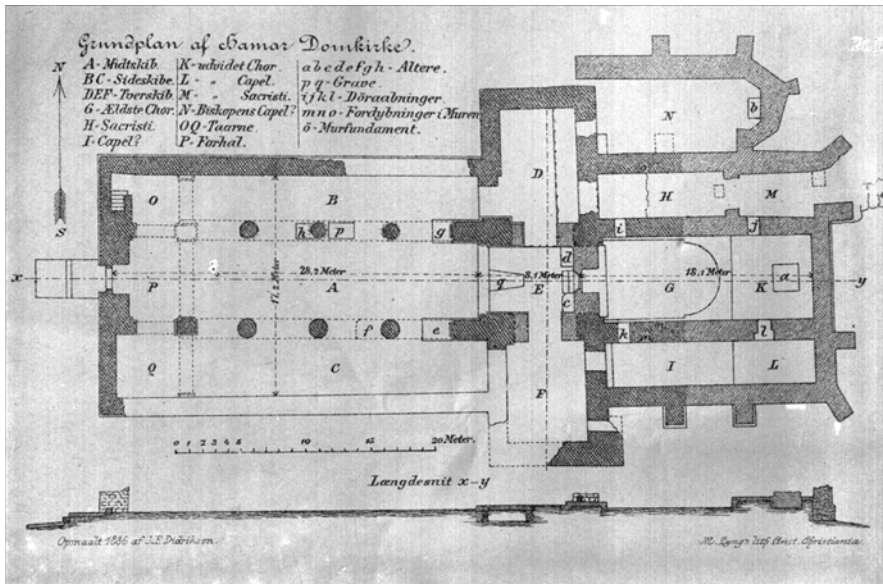 Grundplan af Hamar Domkirke.
A-Midtskib.
BC-Sideskibe.
DEF-Tverskib.
G-Ældstr Chor.
H-Sacristi.
I-Capel?
K-udvidet Chor.
L- „ Capel.
M- „ Sacristi.
N-Biskopens Capel?
OQ-Taarne.
P-Forhal.
abcdefgh-Altere.
pq-Grave.
ijkl-Döraabninger.
mno-Fordybninger i Muren
ö-Murfundament.
N
S
N
b
O
B
D
H
M
h
p
g
i
f
d
x
28,2 Meter.
8,1 Meter.
18,1 Meter.
a
y
P
17,2 Meter.
A
q
E
G
K
c
f
e
k
l
Q
C
F
I
L
0 1 2 3 4 5 10 15 20 Meter.
Længdesnit x-y
Opmaalt 1886 af J.E. Didrikson.
M. Lyngs lith Anst. Christiania.